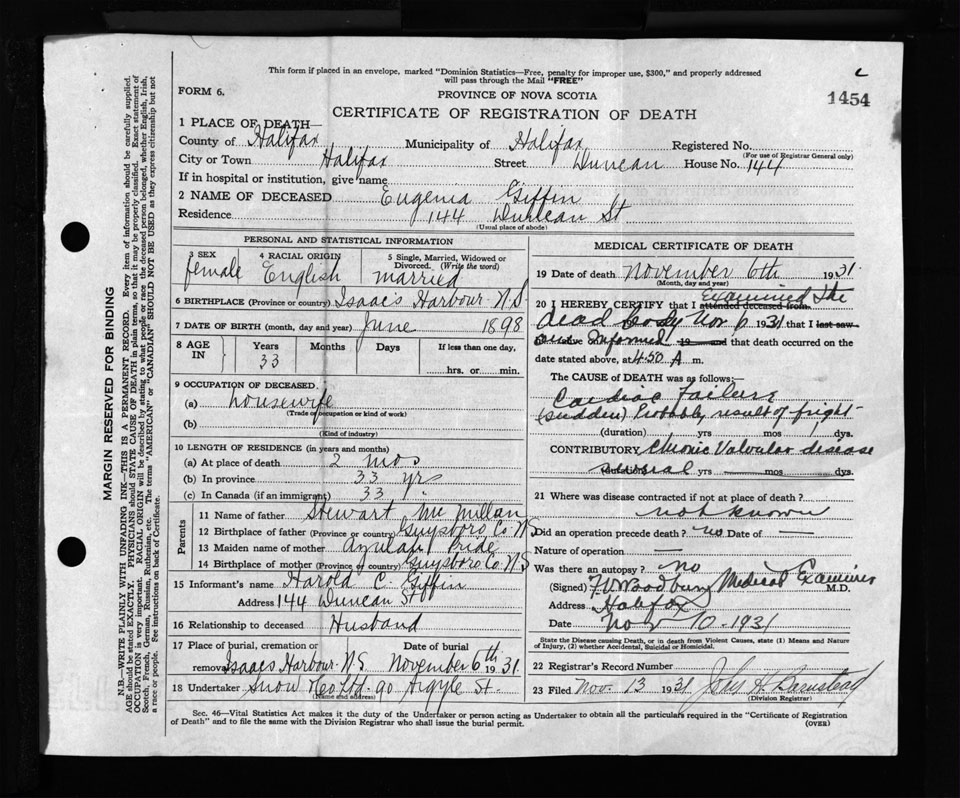 This form if placed in an envelope, marked "Dominion Statistics—Free, penalty for improper use, $300," and properly addressed
will pass through the Mail "FREE"
FORM 6.
PROVINCE OF NOVA SCOTIA
1454
CERTIFICATE OF REGISTRATION OF DEATH
1 PLACE OF DEATH—
County of Halifax Municipality of Halifax Registered No.
(For use of Registrar General only)
City or Town Halifax Street Duncan House No. 144
If in hospital or institution, give name
2 NAME OF DECEASED Eugenia Giffin
Residence 144 Duncan St
(Usual place of abode)
PERSONAL AND STATISTICAL INFORMATION
3 SEX 4 RACIAL ORIGIN 5 Single, Married, Widowed or
Divorced. (Write the word)
female English married
6 BIRTHPLACE (Province or country) Isaac's Harbour N.S
7 DATE OF BIRTH (month, day and year) June 1898
8 AGE IN Years Months Days If less than one day,
33
hrs. or min.
9 OCCUPATION OF DECEASED.
(a) housewife
(Trade occupation or kind of work)
(b)
(Kind of industry)
10 LENGTH OF RESIDENCE (in years and months)
(a) At place of death 2 mos
(b) In province 33 yrs
(c) In Canada (if an immigrant) 33 "
Parents
11 Name of father Stewart McMillan
12 Birthplace of father (Province or country) Guysboro Co. N.S
13 Maiden name of mother Pride
14 Birthplace of mother (Province or country) Guysboro Co. N.S
15 Informant's name Harold C. Giffin
Address 144 Duncan St
16 Relationship to deceased Husband
17 Place of burial, cremation or Date of burial
removal Isaacs Harbour N.S November 6th 1931
18 Undertaker Snow & Co Ltd. 90 Argyle St.
(Name and address)
MEDICAL CERTIFICATE OF DEATH
19 Date of death November 6th 1931
(Month, day and year)
20 I HEREBY CERTIFY that I attended deceased from Examined the
dead body Nov 6 1931 that I last saw
alive Informed 19 and that death occurred on the
date stated above, at 4.50 A m.
The CAUSE of DEATH was as follows:—
Cardiac Failure
(sudden) Probably result of fright
(duration) yrs mos dys.
CONTRIBUTORY Chronic Valvular disease
several yrs mos dys.
21 Where was disease contracted if not at place of death?
not known
Did an operation precede death? no Date of —
Nature of operation —
Was there an autopsy? no
(Signed) Medical Examiner M.D.
Address Halifax
Date Nov 10-1931
State the Disease causing Death, or in death from Violent Causes, state (1) Means and Nature
of Injury, (2) whether Accidental, Suicidal or Homicidal.
22 Registrar's Record Number
23 Filed Nov. 13 1931 John H
(Division Registrar)
Sec. 46—Vital Statistics Act makes it the duty of the Undertaker or person acting as Undertaker to obtain all the particulars required in the "Certificate of Registration
of Death" and to file the same with the Division Registrar who shall issue the burial permit.
(OVER)
MARGIN RESERVED FOR BINDING
N.B.—WRITE PLAINLY WITH UNFADING INK—THIS IS A PERMANENT RECORD. Every item of information should be carefully supplied.
AGE should be stated EXACTLY. PHYSICIANS should STATE CAUSE OF DEATH in plain terms, so that it may be properly classified. Exact statement of
OCCUPATION is very important. RACIAL ORIGIN will be described by stating to what people or race the deceased person belonged, whether English, Irish,
Scotch, French, German, Russian, Ruthenian, etc. The terms "AMERICAN" or "CANADIAN" SHOULD NOT BE USED as they express citizenship but not
a race or people. See instructions on back of Certificate.